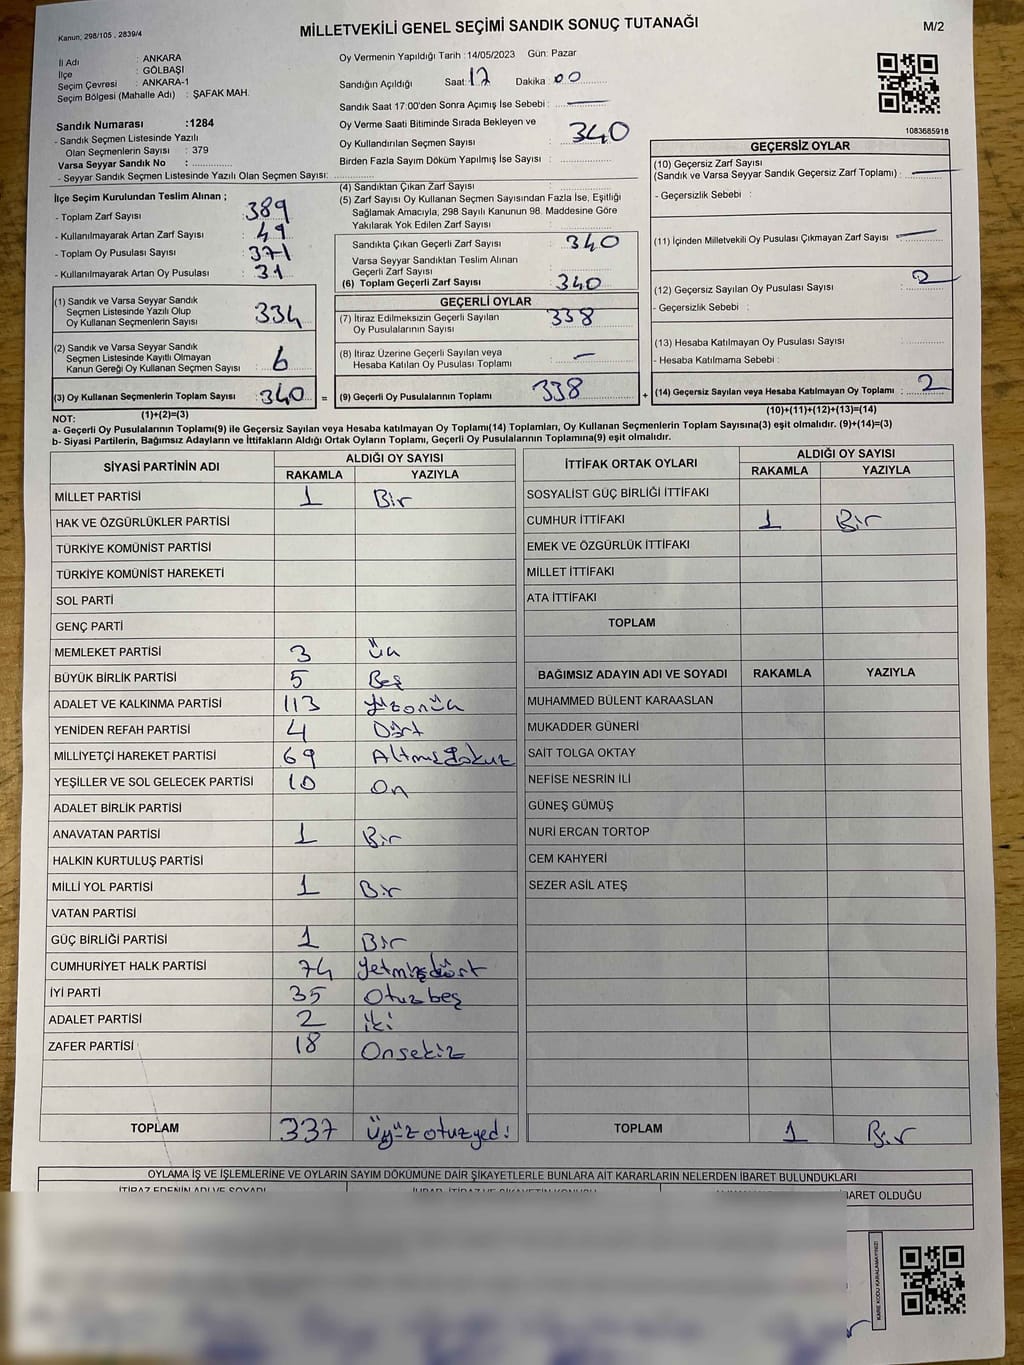 Kanun, 298/105 , 2839/4
MİLLETVEKİLİ GENEL SEÇİMİ SANDIK SONUÇ TUTANAĞI
M/2
İl Adı : ANKARA
İlçe : GÖLBAŞI
Seçim Çevresi : ANKARA-1
Seçim Bölgesi (Mahalle Adı) : ŞAFAK MAH.
Sandık Numarası :1284
- Sandık Seçmen Listesinde Yazılı
Olan Seçmenlerin Sayısı : 379
Varsa Seyyar Sandık No :
- Seyyar Sandık Seçmen Listesinde Yazılı Olan Seçmen Sayısı:
Oy Vermenin Yapıldığı Tarih :14/05/2023 Gün: Pazar
Sandığın Açıldığı Saat: 17 Dakika : 00
Sandık Saat 17:00'den Sonra Açımış İse Sebebi : —
Oy Verme Saati Bitiminde Sırada Bekleyen ve
Oy Kullandırılan Seçmen Sayısı : 340
Birden Fazla Sayım Döküm Yapılmış İse Sayısı :
1083685918
İlçe Seçim Kurulundan Teslim Alınan ;
- Toplam Zarf Sayısı : 389
- Kullanılmayarak Artan Zarf Sayısı : 49
- Toplam Oy Pusulası Sayısı : 371
- Kullanılmayarak Artan Oy Pusulası : 31
(1) Sandık ve Varsa Seyyar Sandık
Seçmen Listesinde Yazılı Olup
Oy Kullanan Seçmenlerin Sayısı : 334
(2) Sandık ve Varsa Seyyar Sandık
Seçmen Listesinde Kayıtlı Olmayan
Kanun Gereği Oy Kullanan Seçmen Sayısı : 6
(3) Oy Kullanan Seçmenlerin Toplam Sayısı : 340 =
(1)+(2)=(3)
(4) Sandıktan Çıkan Zarf Sayısı :
(5) Zarf Sayısı Oy Kullanan Seçmen Sayısından Fazla İse, Eşitliği
Sağlamak Amacıyla, 298 Sayılı Kanunun 98. Maddesine Göre
Yakılarak Yok Edilen Zarf Sayısı :
Sandıkta Çıkan Geçerli Zarf Sayısı : 340
Varsa Seyyar Sandıktan Teslim Alınan
Geçerli Zarf Sayısı :
(6) Toplam Geçerli Zarf Sayısı : 340
GEÇERLİ OYLAR
(7) İtiraz Edilmeksizin Geçerli Sayılan
Oy Pusulalarının Sayısı : 338
(8) İtiraz Üzerine Geçerli Sayılan veya
Hesaba Katılan Oy Pusulası Toplamı : —
(9) Geçerli Oy Pusulalarının Toplamı : 338 +
GEÇERSİZ OYLAR
(10) Geçersiz Zarf Sayısı
(Sandık ve Varsa Seyyar Sandık Geçersiz Zarf Toplamı) : —
- Geçersizlik Sebebi :
(11) İçinden Milletvekili Oy Pusulası Çıkmayan Zarf Sayısı : —
(12) Geçersiz Sayılan Oy Pusulası Sayısı : 2
- Geçersizlik Sebebi :
(13) Hesaba Katılmayan Oy Pusulası Sayısı :
- Hesaba Katılmama Sebebi :
(14) Geçersiz Sayılan veya Hesaba Katılmayan Oy Toplamı : 2
(10)+(11)+(12)+(13)=(14)
NOT:
a- Geçerli Oy Pusulalarının Toplamı(9) ile Geçersiz Sayılan veya Hesaba katılmayan Oy Toplamı(14) Toplamları, Oy Kullanan Seçmenlerin Toplam Sayısına(3) eşit olmalıdır. (9)+(14)=(3)
b- Siyasi Partilerin, Bağımsız Adayların ve İttifakların Aldığı Ortak Oyların Toplamı, Geçerli Oy Pusulalarının Toplamına(9) eşit olmalıdır.
SİYASİ PARTİNİN ADI ALDIĞI OY SAYISI
RAKAMLA YAZIYLA
MİLLET PARTİSİ 1 Bir
HAK VE ÖZGÜRLÜKLER PARTİSİ
TÜRKİYE KOMÜNİST PARTİSİ
TÜRKİYE KOMÜNİST HAREKETİ
SOL PARTİ
GENÇ PARTİ
MEMLEKET PARTİSİ 3 Üç
BÜYÜK BİRLİK PARTİSİ 5 Beş
ADALET VE KALKINMA PARTİSİ 113 Yüzonüç
YENİDEN REFAH PARTİSİ 4 Dört
MİLLİYETÇİ HAREKET PARTİSİ 69 Altmışdokuz
YEŞİLLER VE SOL GELECEK PARTİSİ 10 On
ADALET BİRLİK PARTİSİ
ANAVATAN PARTİSİ 1 Bir
HALKIN KURTULUŞ PARTİSİ
MİLLİ YOL PARTİSİ 1 Bir
VATAN PARTİSİ
GÜÇ BİRLİĞİ PARTİSİ 1 Bir
CUMHURİYET HALK PARTİSİ 74 Yetmişdört
İYİ PARTİ 35 Otuzbeş
ADALET PARTİSİ 2 iki
ZAFER PARTİSİ 18 Onsekiz
TOPLAM 337 Üçyüzotuzyedi
İTTİFAK ORTAK OYLARI ALDIĞI OY SAYISI
RAKAMLA YAZIYLA
SOSYALİST GÜÇ BİRLİĞİ İTTİFAKI
CUMHUR İTTİFAKI 1 Bir
EMEK VE ÖZGÜRLÜK İTTİFAKI
MİLLET İTTİFAKI
ATA İTTİFAKI
TOPLAM
BAĞIMSIZ ADAYIN ADI VE SOYADI RAKAMLA YAZIYLA
MUHAMMED BÜLENT KARAASLAN
MUKADDER GÜNERİ
SAİT TOLGA OKTAY
NEFİSE NESRİN İLİ
GÜNEŞ GÜMÜŞ
NURİ ERCAN TORTOP
CEM KAHYERİ
SEZER ASİL ATEŞ
TOPLAM 1 Bir
OYLAMA İŞ VE İŞLEMLERİNE VE OYLARIN SAYIM DÖKÜMÜNE DAİR ŞİKAYETLERLE BUNLARA AİT KARARLARIN NELERDEN İBARET BULUNDUKLARI
İTİRAZ EDENİN ADI VE SOYADI
BARET OLDUĞU
KARE KODU KARALAMAYINIZ!